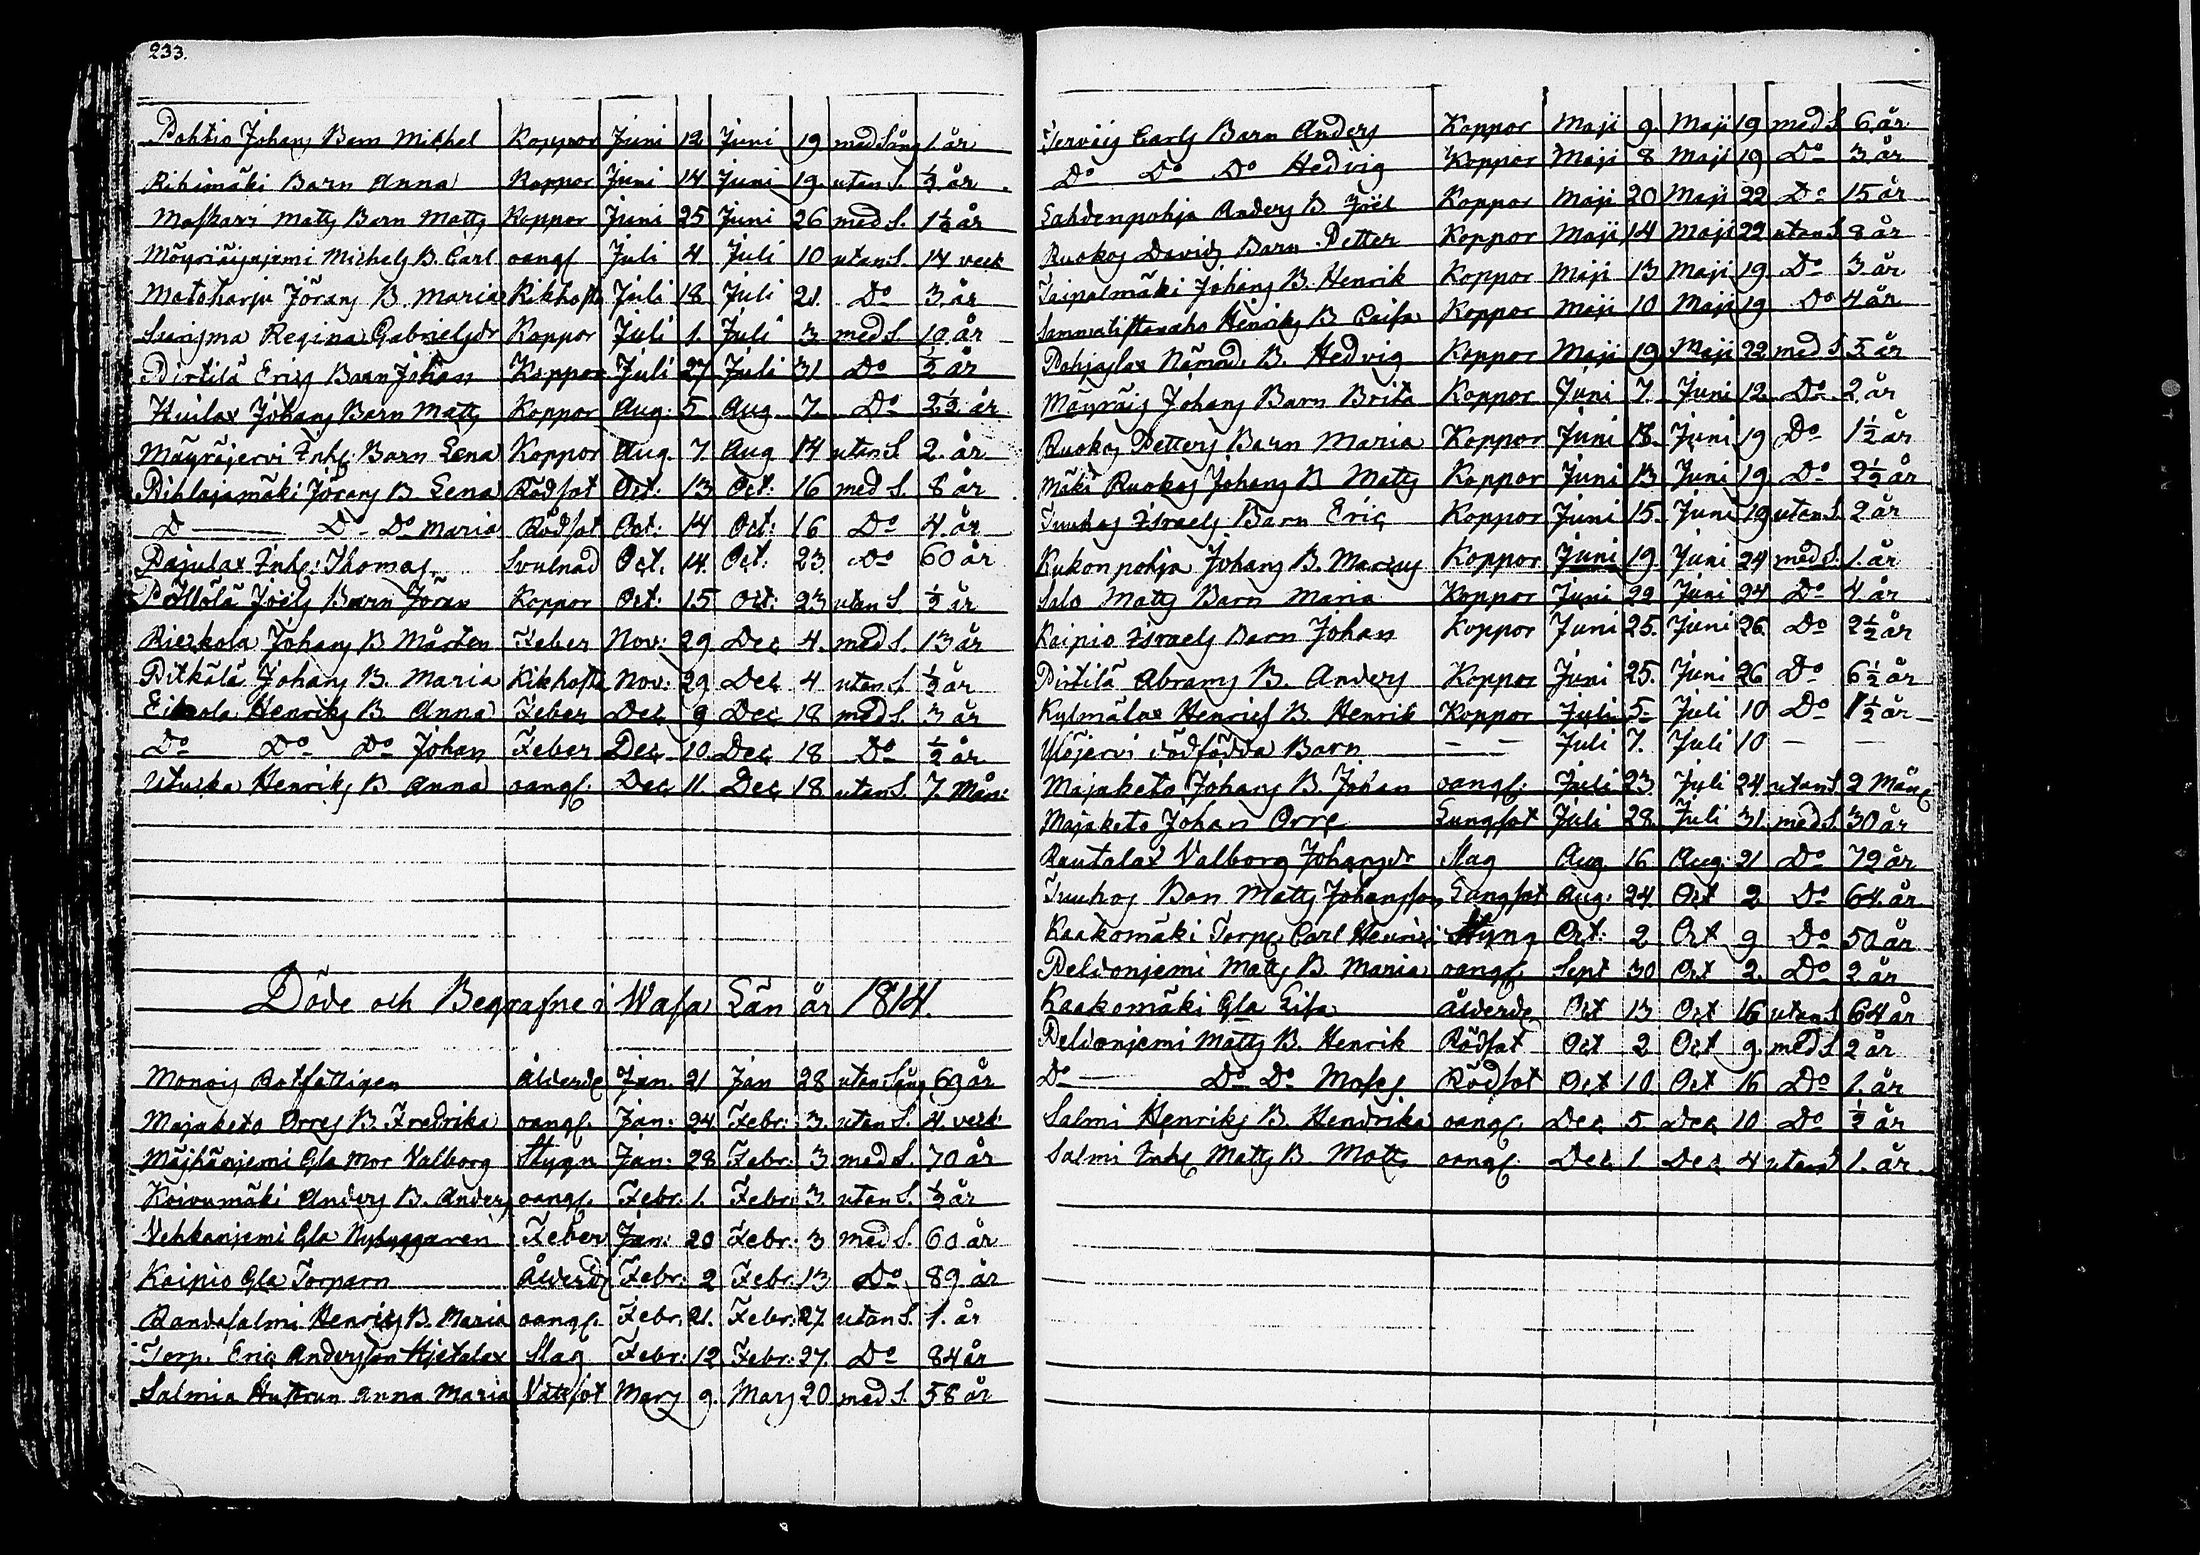 233.
Pohtio Johans Barn Michel Koppor Juni 12 Juni 19 med Sång 1 år
Rihimäki Barn Anna Koppor Juni 14 Juni 19. utan S. ½ år
Maskari Matts Barn Matts Koppor Juni 25 Juni 26 med S. 1½ år
Michels B. Carl oangf Juli 4 Juli 10 utan S. 14 veck
Matoharju Jörans B. Maria Kikhosta Juli 18 Juli 21. Do 3 år
Regina Gabrielsdr Koppor Juli 1. Juli 3 med S. 10 år
Pirtilä Erics Barn Johan Koppor Juli 27 Juli 31 Do ½ år
Kuilax Johans Barn Matts Koppor Aug: 5 Aug 7. Do 2½ år
Mäyräjervi Inhs: Barn Lena Koppor Aug 7. Aug 14 utan S 2. år
Pihlajamäki Jörans B Lena Rödsot Oct: 13 Oct: 16 med S. 8 år
D Do Do Maria Rödsot Oct: 14 Oct: 16 Do 4. år
Pajulax Inhs: Thomas Svulnad Oct. 14. Oct: 23 Do 60 år
Pöllölä Joëls Barn Jöran Koppor Oct: 15 Oct: 23 utan S. ½ år
Rieskola Johans B Mårten Feber Nov: 29 Dec 4. med S. 13 år
Pitkälä Johans B. Maria Kikhosta Nov: 29 Dec 4 utan S. ½ år
Henriks B Anna Feber Dec 9 Dec 18 med S. 3 år
Do Do Do Johan Feber Dec 10. Dec 18 Do ½ år
Utuska Henriks B Anna oangf. Dec 11. Dec 18 utan S. 7 Mån:
Döde och Begrafne i Wasa Län år 1814.
Monois Rotfattigen Ålderd Jan. 21 Jan 28 utan Sång 69 år
Majaketo Orres B. Fredrika oangf. Jan: 24 Febr: 3. utan S. 4. veck
Mäjhänjemi Gla Mor Valborg Stygn Jan: 28 Febr: 3 med S. 70 år
Koivumäki Anders B. Anders oangf. Febr: 1. Febr: 3. utan S. ½ år
Vehkanjemi Gla Nybyggaren Feber Jan: 20 Febr: 3 med S. 60 år
Kaipio Gla Torparn Ålderd Febr: 2 Febr. 13 Do 89 år
Randasalmi Henrics B. Maria oangf. Febr: 21. Febr: 27. utan S. 1. år
Torp. Eric Andersson Hjetalax Slag Febr: 12 Febr: 27. Do 84 år
Salmia Hustrun Anna Maria Vattsot Mars 9. Mars 20 med S. 58 år
Jerväis Carls Barn Anders Koppor Maji 9. Maji 19 med S. 6 år
Do Do Do Hedvig Koppor Maji 8 Maji 19 Do 3 år
Lahdenpohja Anders B. Joël Koppor Maji 20 Maji 22 Do 15 år
Ruokos Davids Barn Petter Koppor Maji 14 Maji 22 utan S 8 år
Taipalmäki Johans B. Henrik Koppor Maji 13 Maji 19. Do 3 år
Henriks B Caisa Koppor Maji 10 Maji 19 Do 4 år
Pohjaslax Nämnd. B. Hedvig Koppor Maji 19 Maji 22 med S 5 år
Mäyräis Johans Barn Brita Koppor Juni 7. Juni 12. Do 2 år
Ruokos Petters Barn Maria Koppor Juni 18. Juni 19 Do 1½ år
Mäki Ruokos Johans B Matts Koppor Juni 13 Juni 19. Do 2½ år
Tuuhas Israels Barn Eric Koppor Juni 15. Juni 19 utan S. 2 år
Rukonpohja Johans B. Marcus Koppor Juni 19. Juni 24 med S. 1. år
Salo Matts Barn Maria Koppor Juni 22 Juni 24 Do 4. år
Kaipio Israels Barn Johan Koppor Juni 25. Juni 26. Do 2½ år
Pirtilä Abrams B. Anders Koppor Juni 25. Juni 26 Do 6½ år
Kylmälax Henrics B. Henrik Koppor Juli 5 Juli 10 Do 1½ år
Ylöjervi dödfödda Barn — — Juli 7. Juli 10 — —
Majaketo Johans B. Johan oangf. Juli 23 Juli 24. utan S. 2 Mån
Majaketo Johan Orre Lungsot Juli 28. Juli 31. med S. 30 år
Rautalax Valborg Johansdr Slag Aug 16 Aug: 21 Do 72 år
Tuuhas Bon Matts Johansson Lungsot Aug: 24. Oct 2 Do 64. år
Kaakomäki Torp. Carl Henric Styng Oct: 2 Oct 9 Do 50 år
Peldonjemi Matts B Maria oangf. Sept 30 Oct 2. Do 2. år
Kaakomäki Gla Lisa Ålderd Oct 13 Oct 16 utan S 64 år
Peldonjemi Matts B. Henrik Rödsot Oct 2 Oct 9 med S 2 år
Do Do Do Moses Rödsot Oct 10. Oct 16 Do 1. år
Salmi Henriks B. Hendrika oangf. Dec 5 Dec 10 Do ½ år
Salmi Inhs Matts B. Matts oangf. Dec 1 Dec 4 utan S 1. år